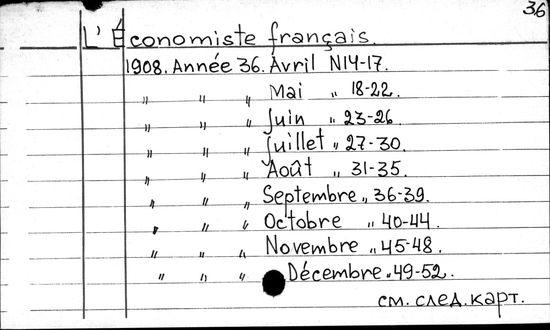 36
L'Économiste français.
1908. Année 36. Avril N14-17.
" " " Mai " 18-22.
" " " Juin " 23-26.
" " " Juillet " 27-30.
" " " Août " 31-35.
" " " Septembre " 36-39.
" " " Octobre " 40-44.
" " " Novembre " 45-48.
" " " Décembre " 49-52.
см. след. карт.